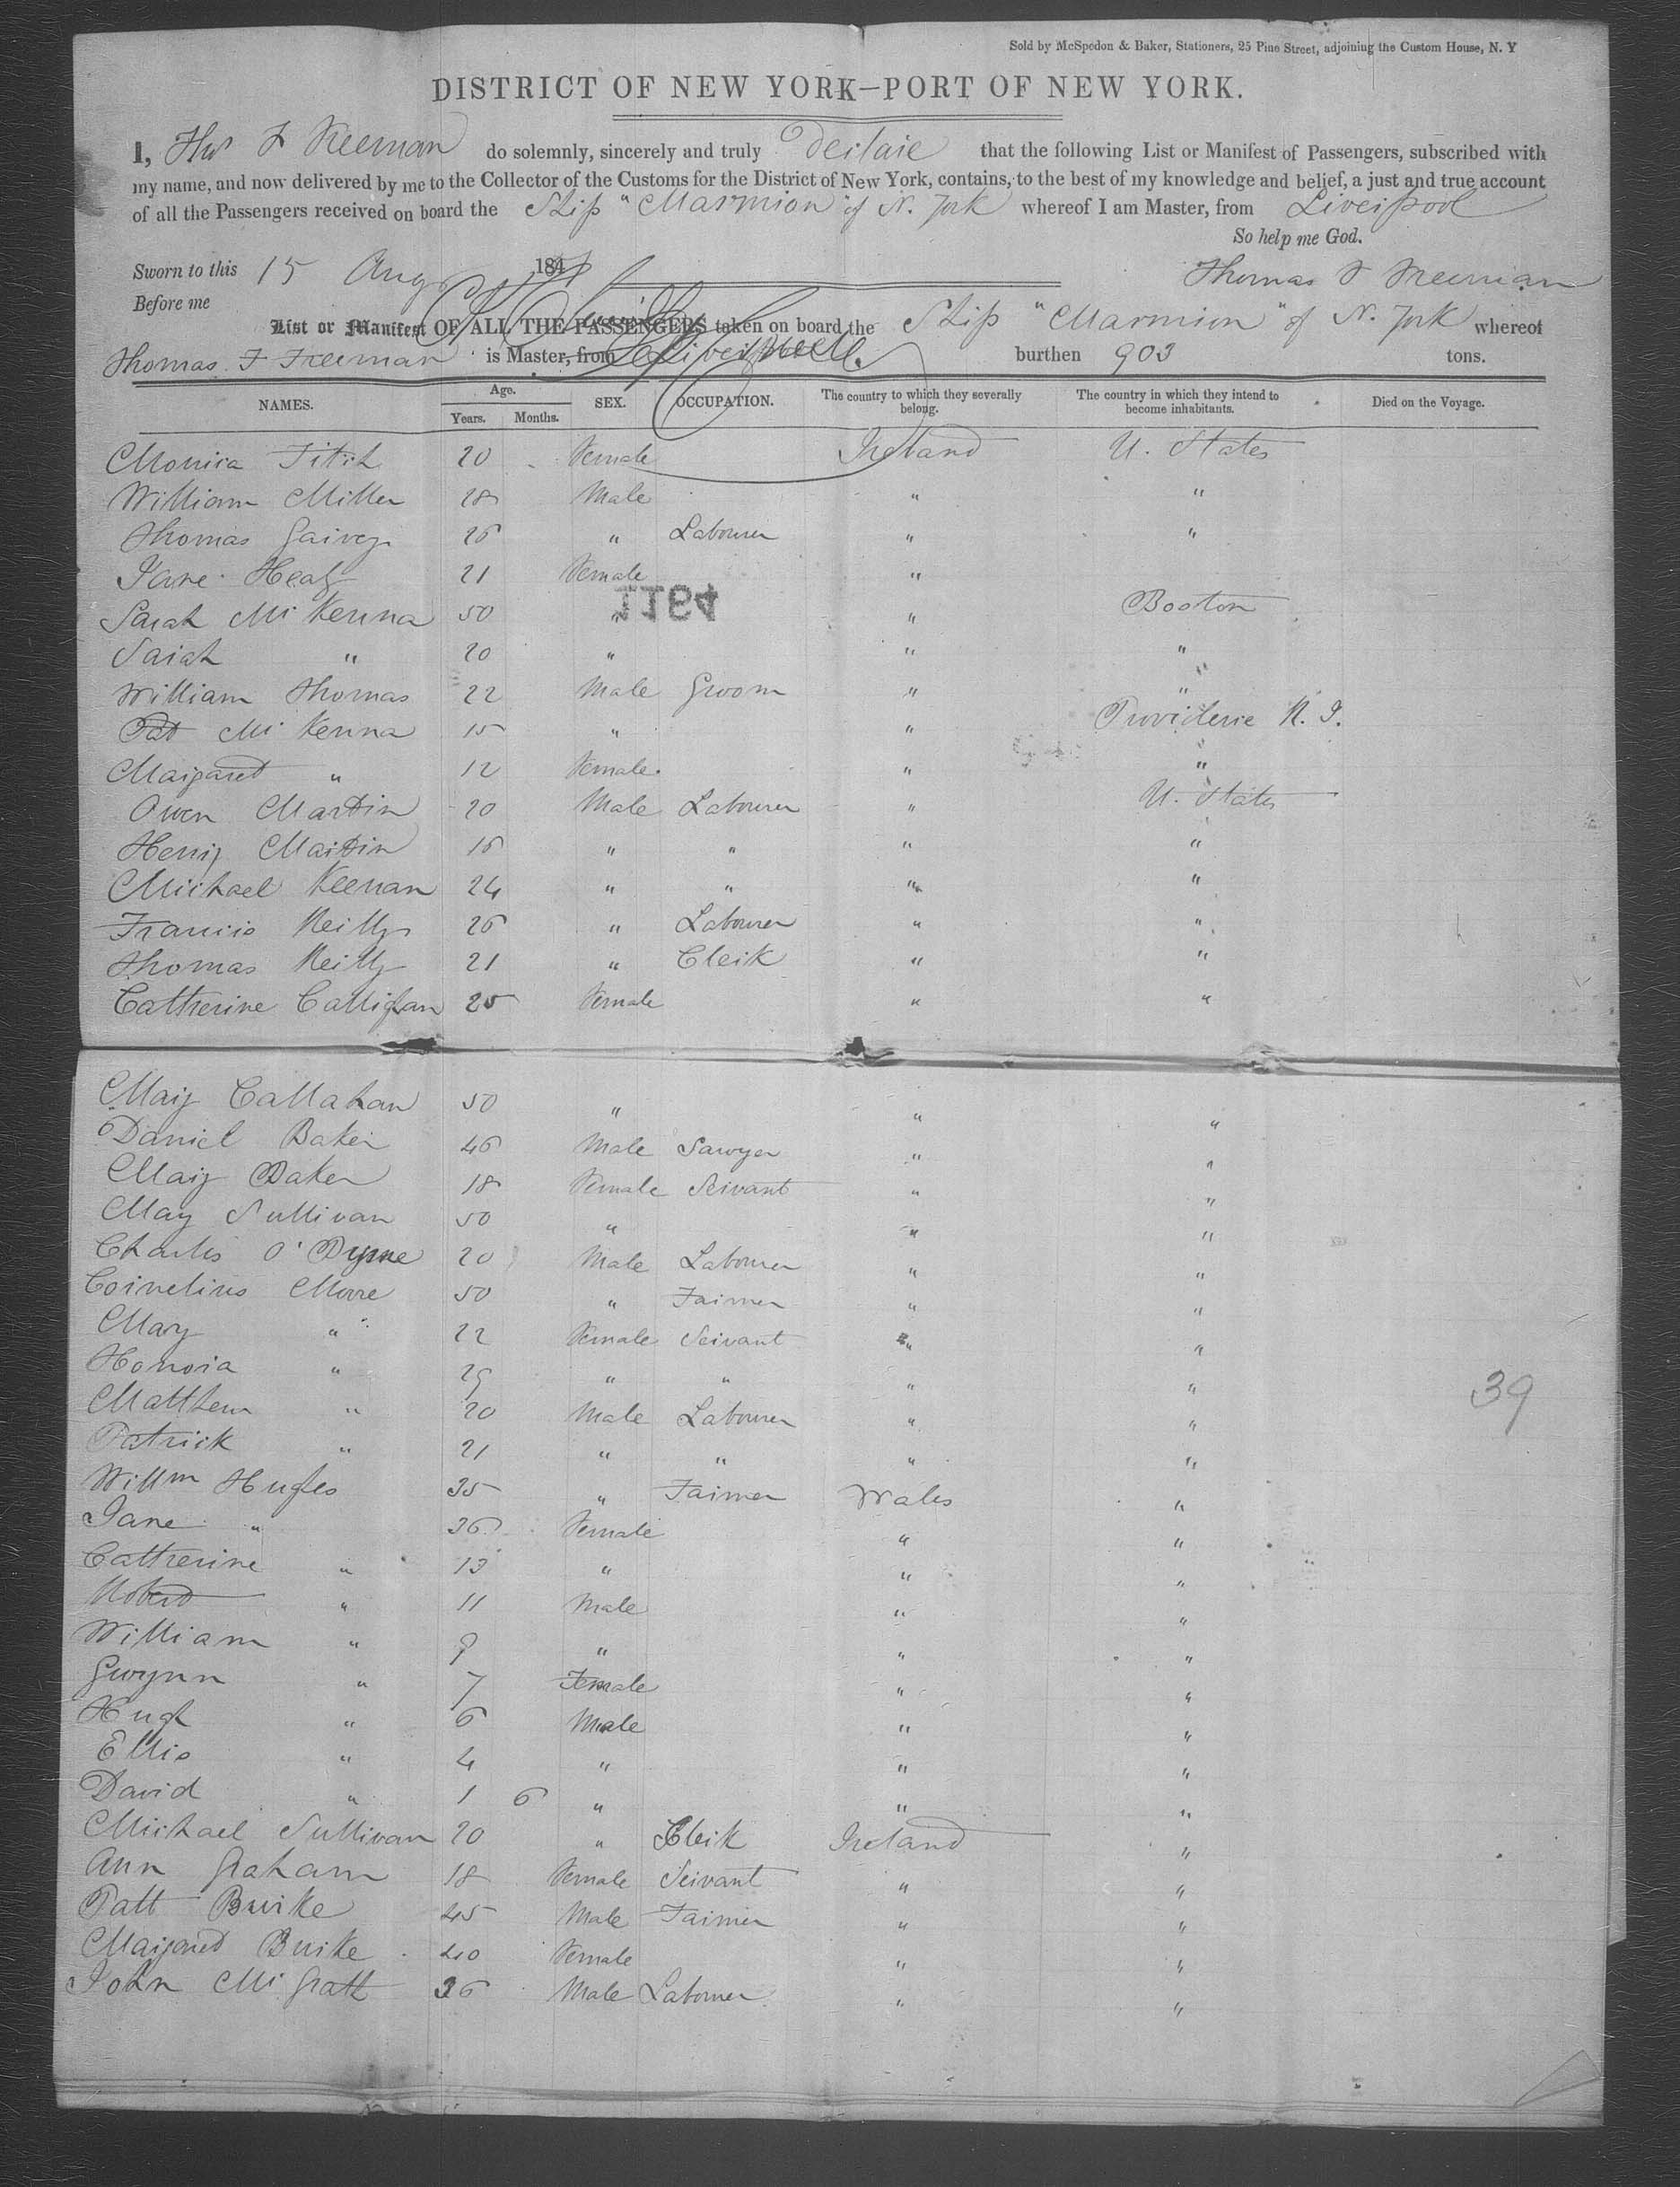 Sold by McSpedon & Baker, Stationers, 25 Pine Street, adjoining the Custom House, N. Y
DISTRICT OF NEW YORK—PORT OF NEW YORK.
I, Thos F Freeman do solemnly, sincerely and truly declare that the following List or Manifest of Passengers, subscribed with
my name, and now delivered by me to the Collector of the Customs for the District of New York, contains, to the best of my knowledge and belief, a just and true account
of all the Passengers received on board the Ship "Marmion" of N. York whereof I am Master, from Liverpool
So help me God.
Sworn to this 15 Aug 184
Thomas F Freeman
Before me
List or Manifest OF ALL THE PASSENGERS taken on board the Ship "Marmion" of N. York whereof
Thomas F Freeman is Master, from Liverpool burthen 903 tons.
NAMES. Age. Years. Months. SEX. OCCUPATION. The country to which they severally belong. The country in which they intend to become inhabitants. Died on the Voyage.
Monica Fitch 20 Female Ireland U. States
William Miller 28 Male " "
Thomas Garvey 26 " Labourer " "
Jane Healy 21 Female "
1164
Sarah Mc Kenna 50 " " Boston
Sarah " 20 " " "
William Thomas 22 Male Groom " "
Pat Mc Kenna 15 " " Providence R. I.
Margaret " 12 Female " "
Owen Martin 20 Male Labourer " U. States
Henry Martin 16 " " " "
Michael Keenan 24 " " " "
Francis Reilly 26 " Labourer " "
Thomas Reilly 21 " Clerk " "
Catherine Callighan 25 Female " "
Mary Callahan 50 " " "
Daniel Baker 46 Male Sawyer " "
Mary Baker 18 Female Servant " "
Mary Sullivan 50 " " "
Charles O' Byrne 20 Male Labourer " "
Cornelius Moore 50 " Farmer " "
Mary " 22 Female Servant " "
Honora " 29 " " " "
39
Matthew " 20 Male Labourer " "
Patrick " 21 " " " "
Willm Hughes 35 " Farmer Wales "
Jane " 36 Female " "
Catherine " 13 " " "
Robert " 11 Male " "
William " 9 " " "
Gwynn " 7 Female " "
Hugh " 6 Male " "
Ellis " 4 " " "
David " 1 6 " " "
Michael Sullivan 20 " Clerk Ireland "
Ann Graham 18 Female Servant " "
Patt Burke 45 Male Farmer " "
Margaret Burke 40 Female " "
John Mc Grath 36 Male Labourer " "